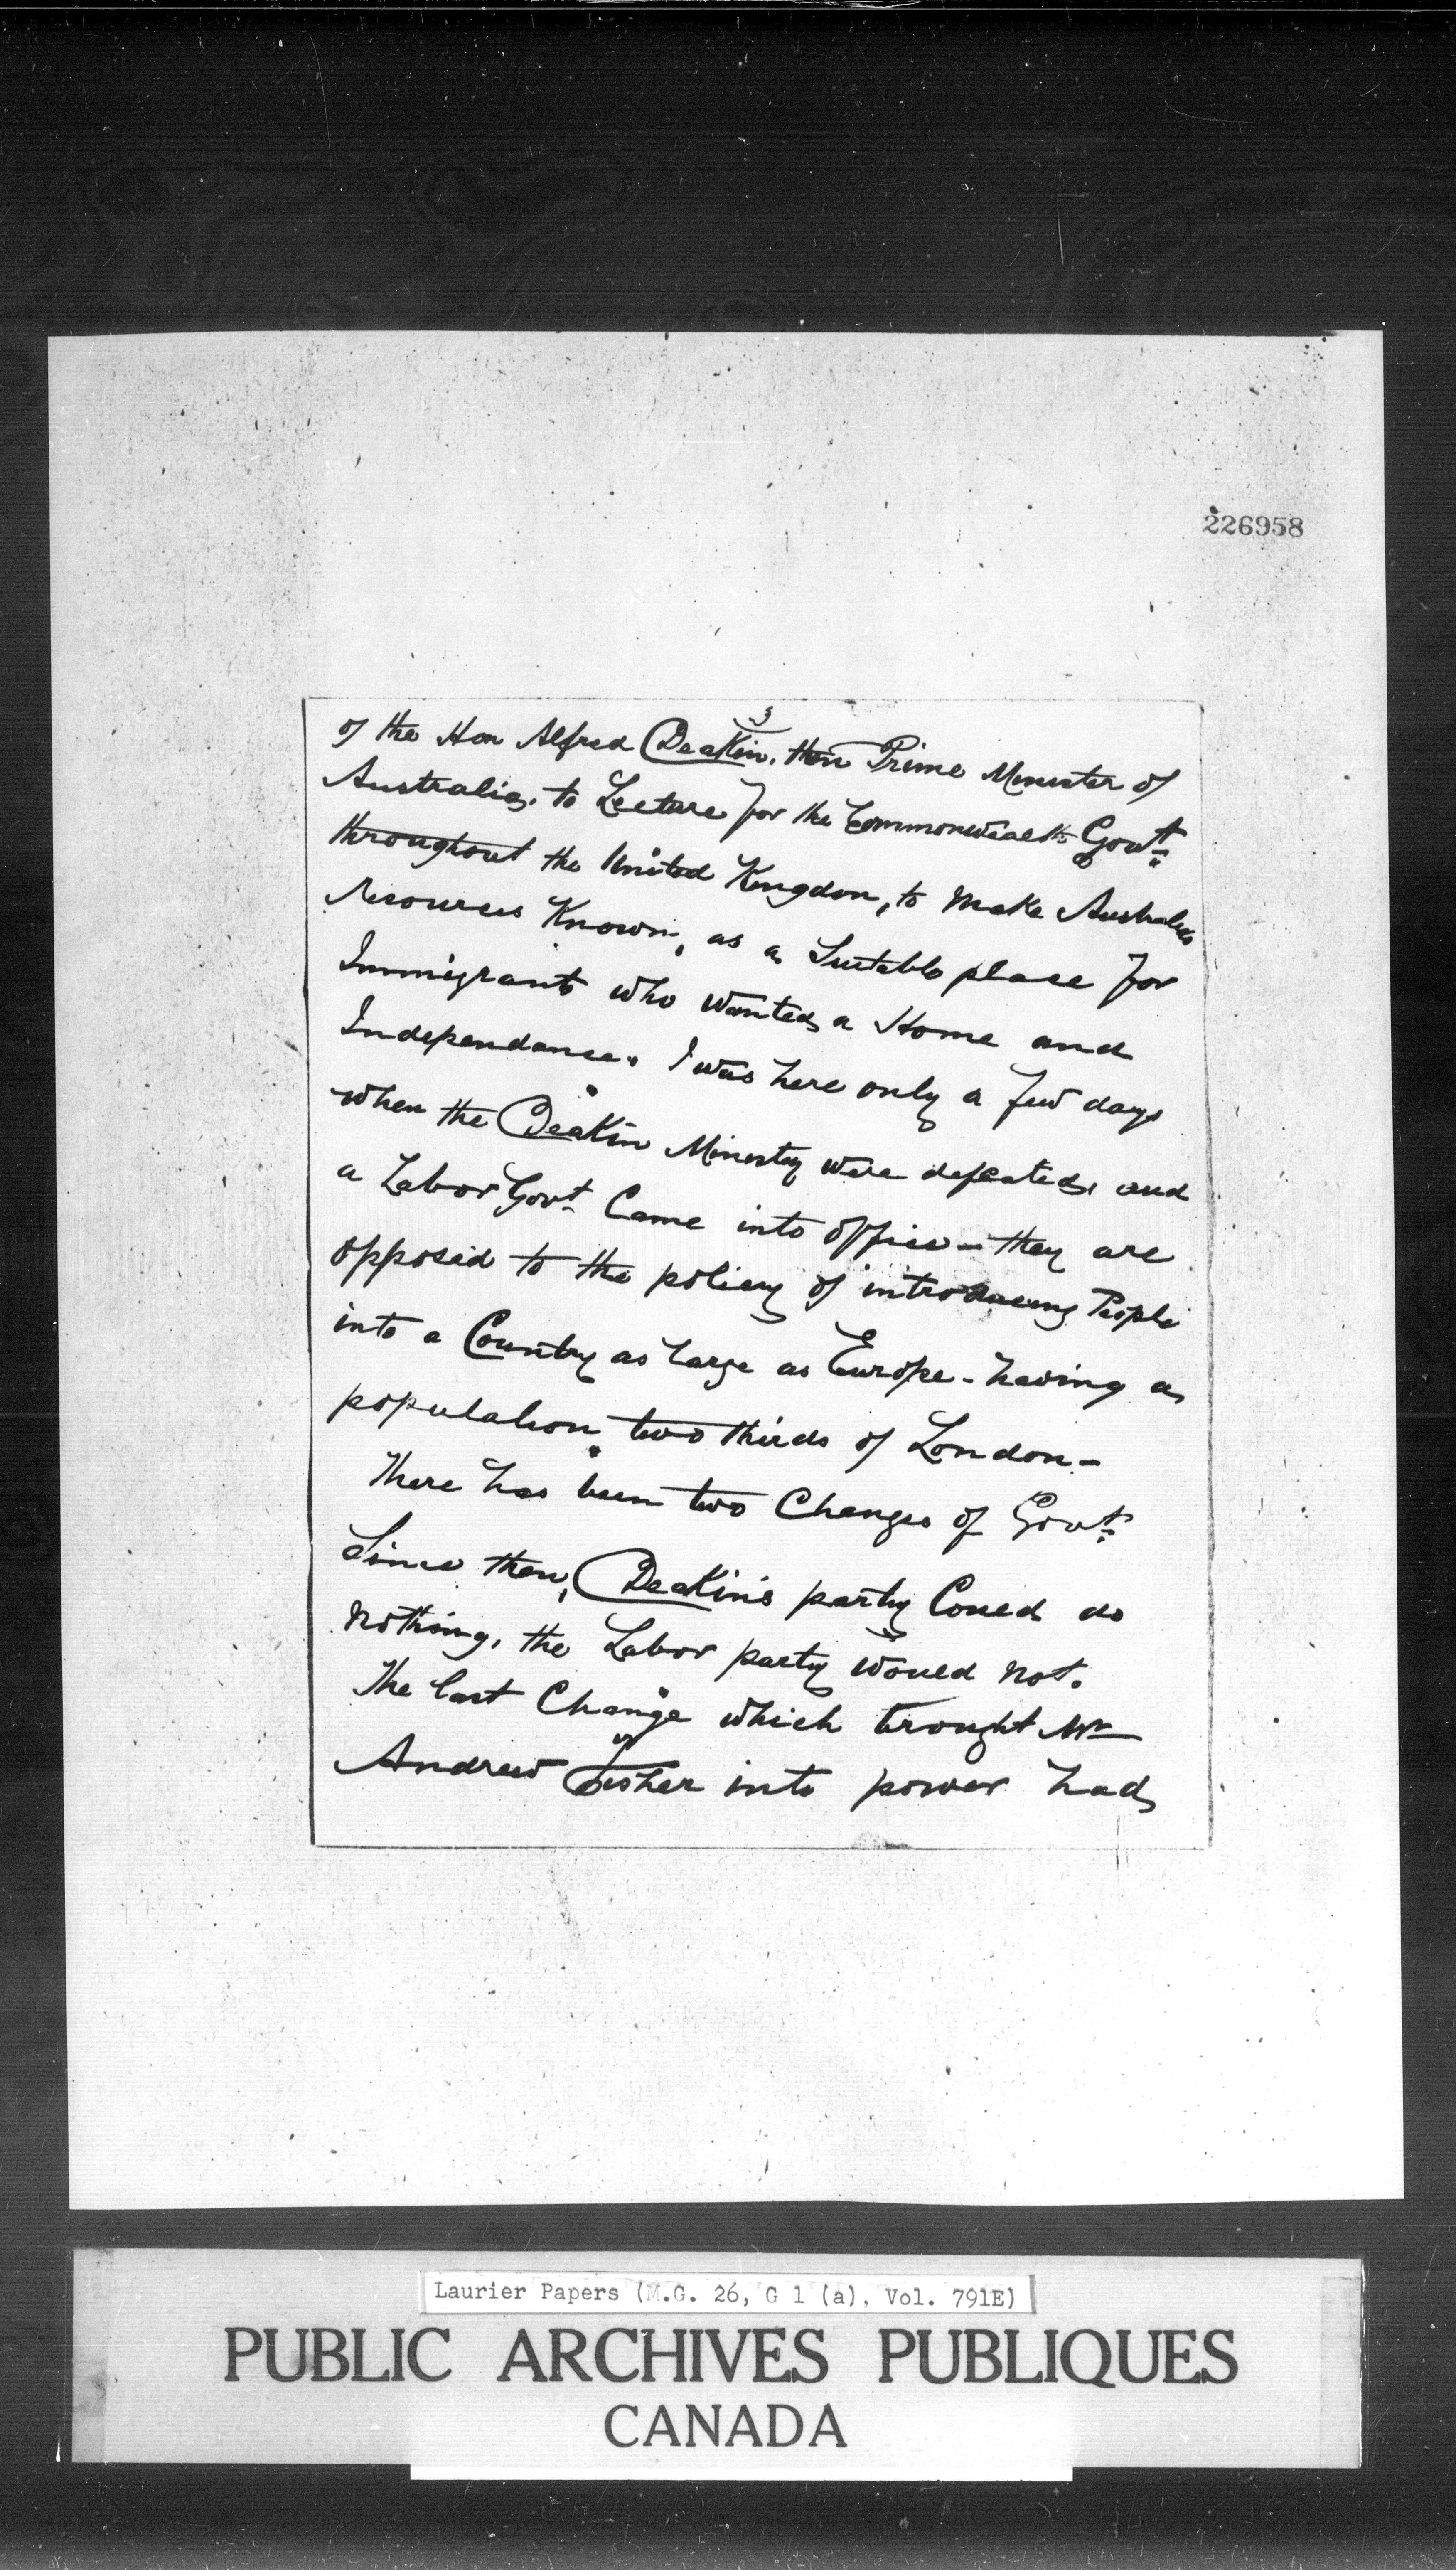 226958
3
of the Hon Alfred Deakin. then Prime Minister of
Australia, to Lecture for the Commonwealth Govt
throughout the United Kingdom, to make Australias
resources Known, as a Suitable place for
Immigrants who wanted a Home and
Independance. I was here only a few days
when the Deakin Ministry were defeated, and
a Labor Govt Came into office - they are
opposed to the policy of introducing People
into a Country as large as Europe - having a
population two thirds of London -
There has been two Changes of Govt
Since then, Deakin's party Could do
nothing, the Labor party would not.
The last Change which brought Mr
Andrew Fisher into power had
Laurier Papers (M.G. 26, G 1 (a), Vol. 791E)
PUBLIC ARCHIVES PUBLIQUES
CANADA